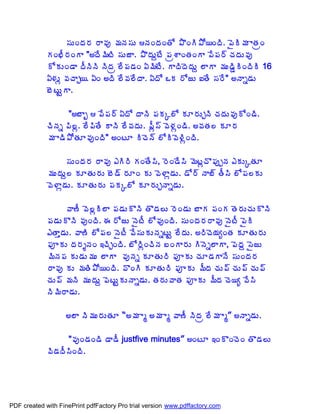 సుందర రావు మనసు ఆనందంతో పొంగిపోయింది. పైకి మాత్రం
గంభీరంగా "అదేమిటి సుజా. పొద్దుటే ప్రశాంతంగా పేపర్ చదువు
కోకుండా దీనిని నిద్ర లేపడం ఏమిటే. గాడిదెద్దు లాగా ముడ్డికిందికి 16
ఏళ్ళు వచ్చాయి. ఏం అది లేవలేదా. ఏదో ఒక రోజు ఐతే సరే" అన్నాడు
బెట్టుగా.
"అబ్బా ఆ పేపర్ ఏదో దాని పక్కలో కూర్చుని చదువుకోండి.
చిన్న పిల్ల. లేపితే కాని లేవదు. ప్లీస్ వెళ్ళండి. అవతల కూర
మాడిపోతూవుంది" అంటూ కిచెన్ లోకివెళ్ళింది.
సుందర రావు ఎగిరి గంతేసి, రెండేసి మెట్లచొప్పున ఎక్కుతూ
ముద్దుల కూతురు బెడ్ రూం కు వెళ్లాడు. డోర్ నాబ్ తీసి లోపలకు
వెళ్లాడు. కూతురు పక్కలో కూర్చున్నాడు.
వాణీ వెల్లకిలా పడుకొని తొడలు రెండు బాగ పంగ తెరుచుకొని
పడుకొని వుంది. ఈ రోజు నైటీ లోవుంది. సుందరరావు నైటీ పైకి
ఎత్తాడు. వాణి లోపల నైటీ వేసుకున్నట్టు లేదు. అరిచెయ్యంత కూతురు
పూకు దర్శనం ఇచ్చింది. బోర్లించిన బంగారు గిన్నెలాగా, పెద్ద సైజు
మినప కుడుము లాగా వున్న కూతురి పూకు చూడగానే సుందర
రావు కు మతిపోయింది. వొంగి కూతురి పూకు మీద చుప్ చుప్ చుప్
చుప్ మని ముద్దు పెట్టుకున్నాడు. తరువాత పూకు మీద చెయ్యి వేసి
నిమిరాడు.
అలా నిమురుతూ "అమ్మా అమ్మా వాణీ నిద్ర లేమ్మా" అన్నాడు.
"వుండండి డాడీ justfive minutes" అంటూ ఇంకొంచెం తొడలు
విడదీసింది.
PDF created with FinePrint pdfFactory Pro trial version www.pdffactory.com